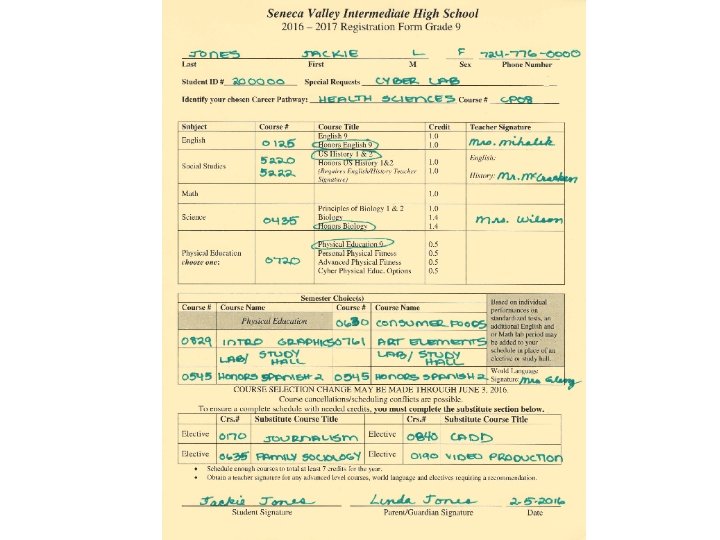 Seneca Valley Intermediate High School
2016 – 2017 Registration Form Grade 9
JONES JACKIE L F 724-776-0000
Last First M Sex Phone Number
Student ID # 200000 Special Requests CYBER LAB
Identify your chosen Career Pathway: HEALTH SCIENCES Course # CP08
Subject Course # Course Title Credit Teacher Signature
English 0125 English 9 1.0 Mrs. Mihalek
Honors English 9 1.0
Social Studies 5220 US History 1 & 2 1.0 English:
5222 Honors US History 1&2 1.0
(Requires English/History Teacher Signature) History: Mr. McCracken
Math 1.0
Science 0435 Principles of Biology 1 & 2 1.0 Mrs. Wilson
Biology 1.4
Honors Biology 1.4
Physical Education choose one: 0720 Physical Education 9 0.5
Personal Physical Fitness 0.5
Advanced Physical Fitness 0.5
Cyber Physical Educ. Options 0.5
Semester Choice(s)
Course # Course Name Course # Course Name
Physical Education 0630 CONSUMER FOODS
0829 INTRO GRAPHICS 0761 ART ELEMENTS
LAB/ STUDY HALL LAB/ STUDY HALL
0545 HONORS SPANISH 2 0545 HONORS SPANISH 2
Based on individual
performances on
standardized tests, an
additional English and
or Math lab period may
be added to your
schedule in place of an
elective or study hall.
World Language
Signature: Mrs
COURSE SELECTION CHANGE MAY BE MADE THROUGH JUNE 3, 2016.
Course cancellations/scheduling conflicts are possible.
To ensure a complete schedule with needed credits, you must complete the substitute section below.
Crs.# Substitute Course Title Crs.# Substitute Course Title
Elective 0170 JOURNALISM Elective 0840 CADD
Elective 0635 FAMILY SOCIOLOGY Elective 0190 VIDEO PRODUCTION
• Schedule enough courses to total at least 7 credits for the year.
• Obtain a teacher signature for any advanced level courses, world language and electives requiring a recommendation.
Jackie Jones Linda Jones 2-5-2016
Student Signature Parent/Guardian Signature Date